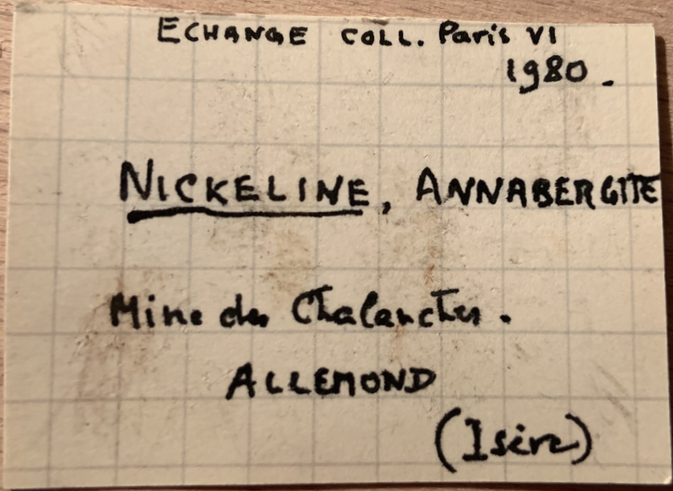 ECHANGE COLL. Paris VI
1980.
NICKELINE, ANNABERGITE
Mine des Chalanches.
ALLEMOND
(Isère)